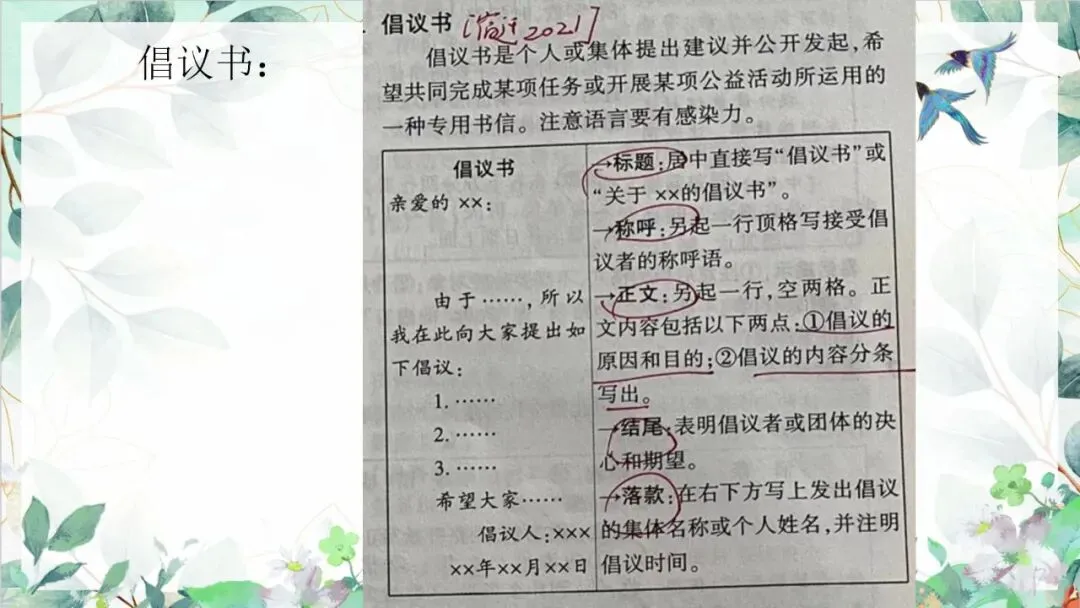 倡议书：
倡议书 [宿迁2021]
倡议书是个人或集体提出建议并公开发起,希
望共同完成某项任务或开展某项公益活动所运用的
一种专用书信。注意语言要有感染力。
倡议书
亲爱的 ××：
由于……,所以
我在此向大家提出如
下倡议：
1. ……
2. ……
3. ……
希望大家……
倡议人：×××
××年××月××日
→标题：居中直接写“倡议书”或
“关于 ××的倡议书”。
→称呼：另起一行顶格写接受倡
议者的称呼语。
→正文：另起一行,空两格。正
文内容包括以下两点：①倡议的
原因和目的；②倡议的内容分条
写出。
→结尾：表明倡议者或团体的决
心和期望。
→落款：在右下方写上发出倡议
的集体名称或个人姓名,并注明
倡议时间。